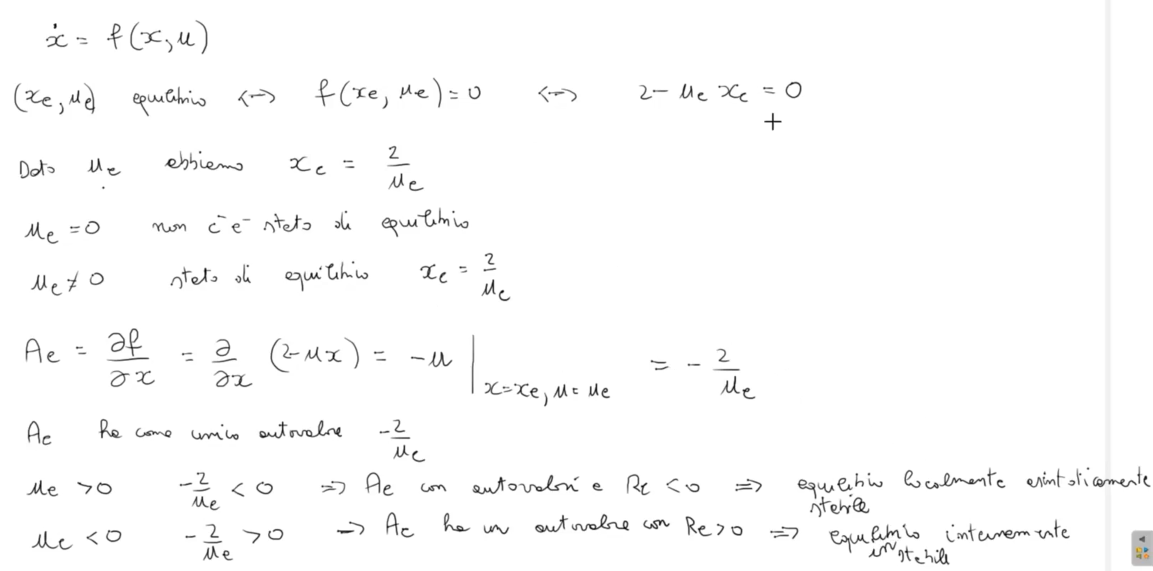 ẋ = f(x,u)
(xe, ue) equilibrio ⟷ f(xe, ue) = 0 ⟷ 2 - ue xe = 0
Dato ue abbiamo xe = 2/ue
ue = 0 non c'è stato di equilibrio
ue ≠ 0 stato di equilibrio xe = 2/ue
Ae = ∂f/∂x = ∂/∂x (2-ux) = -u | x=xe, u=ue = - 2/ue
Ae ha come unico autovalore -2/ue
ue > 0 -2/ue < 0 ⇒ Ae con autovalori a Re < 0 ⇒ equilibrio localmente asintoticamente stabile
ue < 0 -2/ue > 0 ⇒ Ae ha un autovalore con Re > 0 ⇒ equilibrio internamente instabile